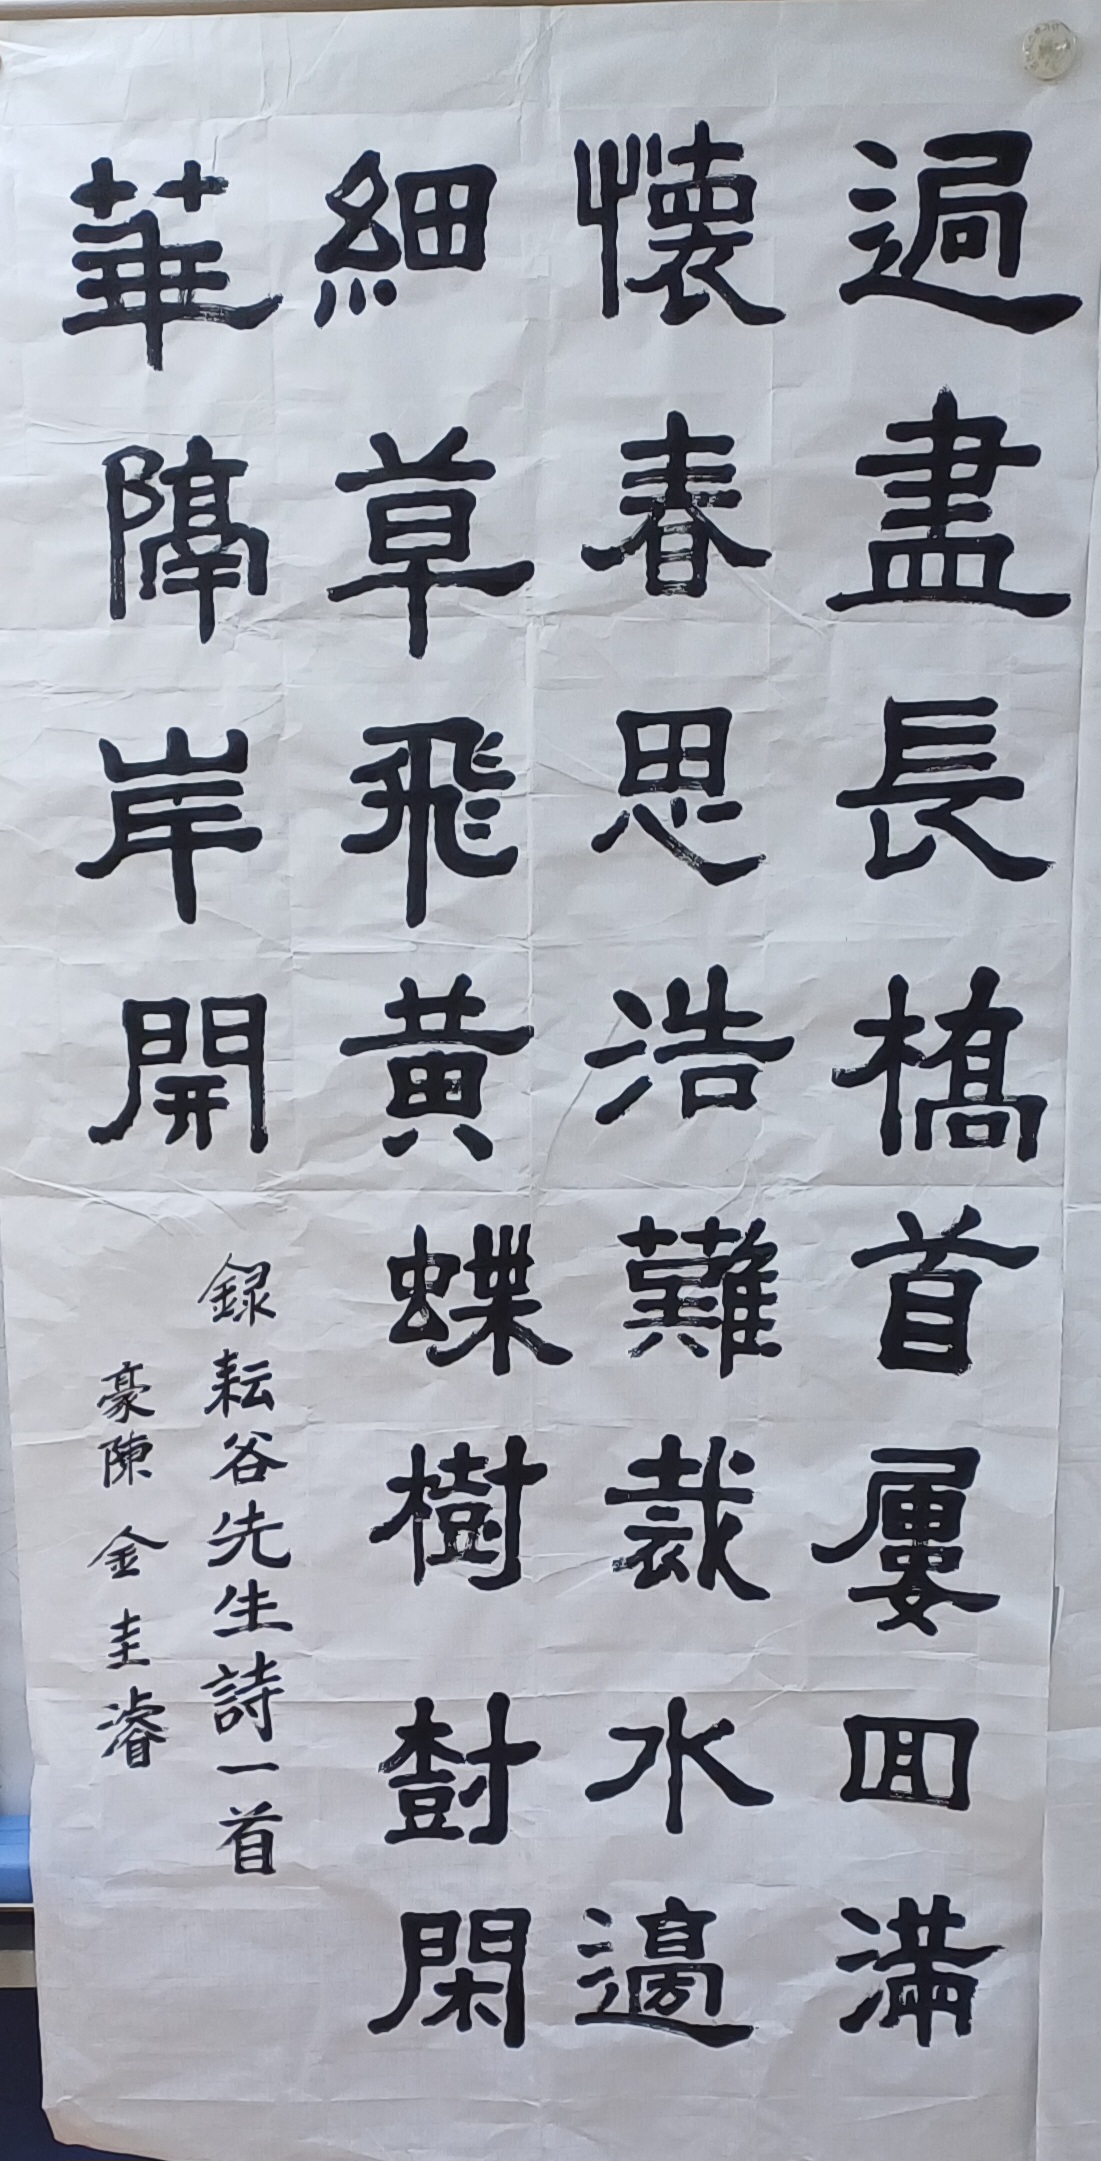 過盡長橋首屢回滿
懷春思浩難裁水邊
細草飛黃蝶樹樹閑
華隔岸開
錄耘谷先生詩一首
豪陳 金圭濬